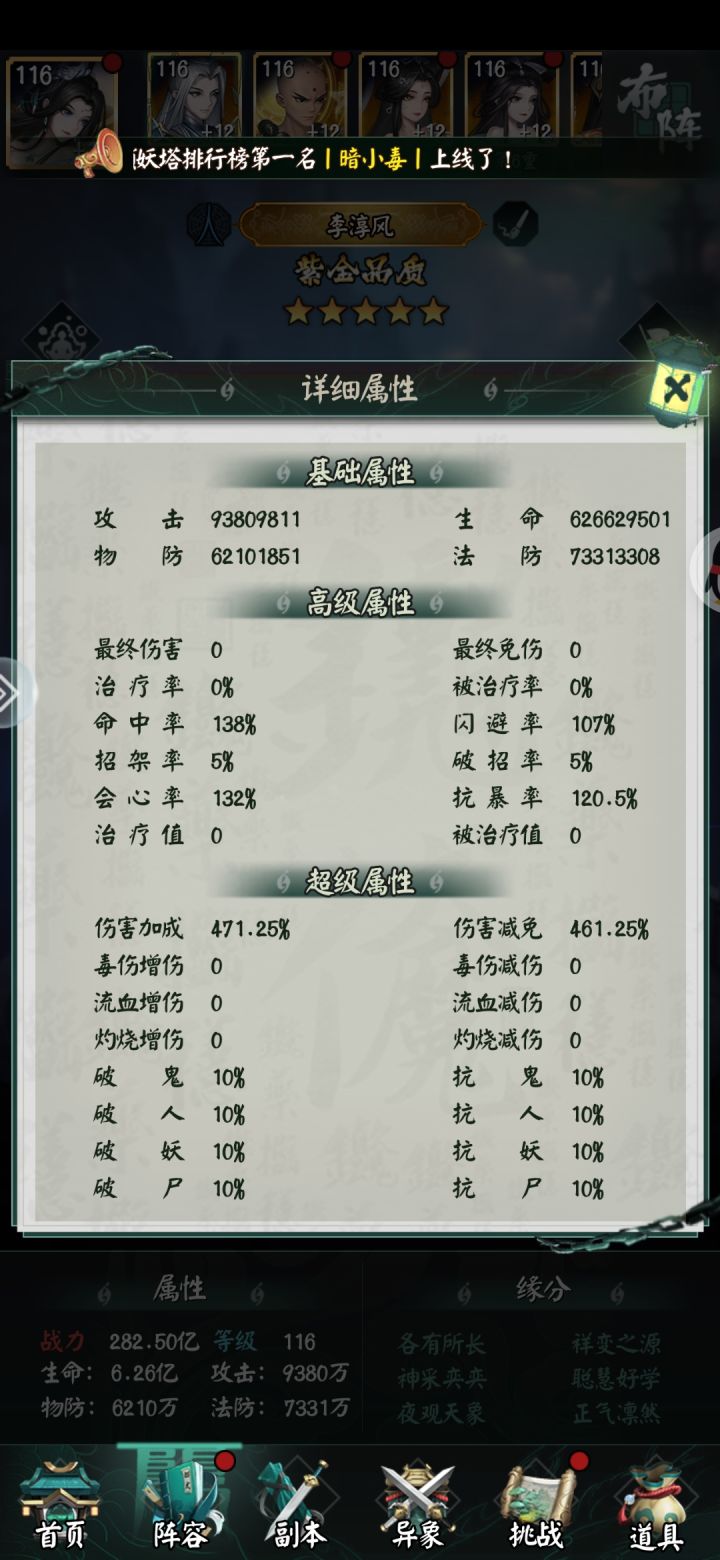 116 116 116 116 116 11
+12 +12 +12 +12
布阵
妖塔排行榜第一名|暗小毒|上线了！
李淳风
紫金品质
详细属性
基础属性
攻击 93809811 生命 626629501
物防 62101851 法防 73313308
高级属性
最终伤害 0 最终免伤 0
治疗率 0% 被治疗率 0%
命中率 138% 闪避率 107%
招架率 5% 破招率 5%
会心率 132% 抗暴率 120.5%
治疗值 0 被治疗值 0
超级属性
伤害加成 471.25% 伤害减免 461.25%
毒伤增伤 0 毒伤减伤 0
流血增伤 0 流血减伤 0
灼烧增伤 0 灼烧减伤 0
破鬼 10% 抗鬼 10%
破人 10% 抗人 10%
破妖 10% 抗妖 10%
破尸 10% 抗尸 10%
属性 缘分
战力 282.50亿 等级 116 各有所长 祥变之源
生命：6.26亿 攻击：9380万 神采奕奕 聪慧好学
物防：6210万 法防：7331万 夜观天象 正气凛然
首页 阵容 副本 异象 挑战 道具